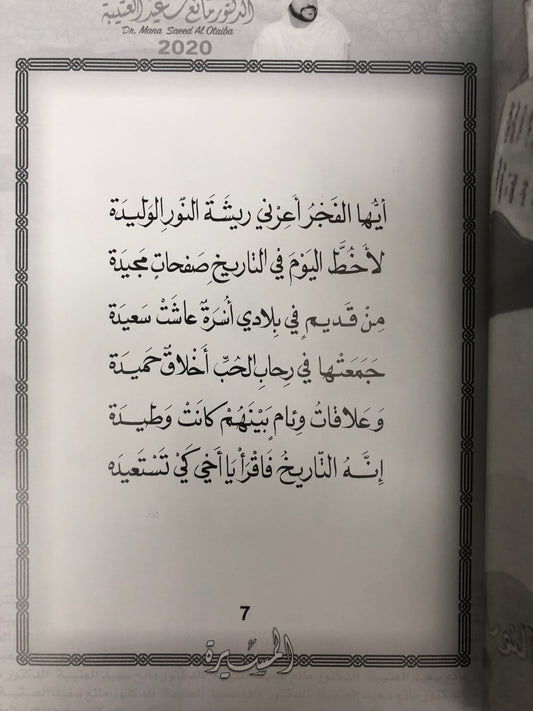 الدكتور مانع سعيد العتيبة
Dr. Mana Saeed Al Otaiba
2020
أيُّها الفَجْرُ أَعِرْني ريشَةَ النّورِ الوَليدَة
لأَخُطَّ اليَوْمَ في التاريخِ صَفحاتٍ مَجيدَة
مِنْ قَديمٍ في بِلادي أُسْرَةٌ عاشَتْ سَعيدَة
جَمَعَتْها في رِحابِ الحُبِّ أَخْلاقٌ حَميدَة
وَعَلاقاتُ وِئامٍ بَيْنَهُمْ كانَتْ وَطيدَة
إنَّهُ التّاريخُ فَاقْرَأْ يا أَخي كَيْ تَسْتَعيدَه
7
المسيرة
مانع سعيد العتيبة الدكتور مانع سعيد العتيبة الدكتور